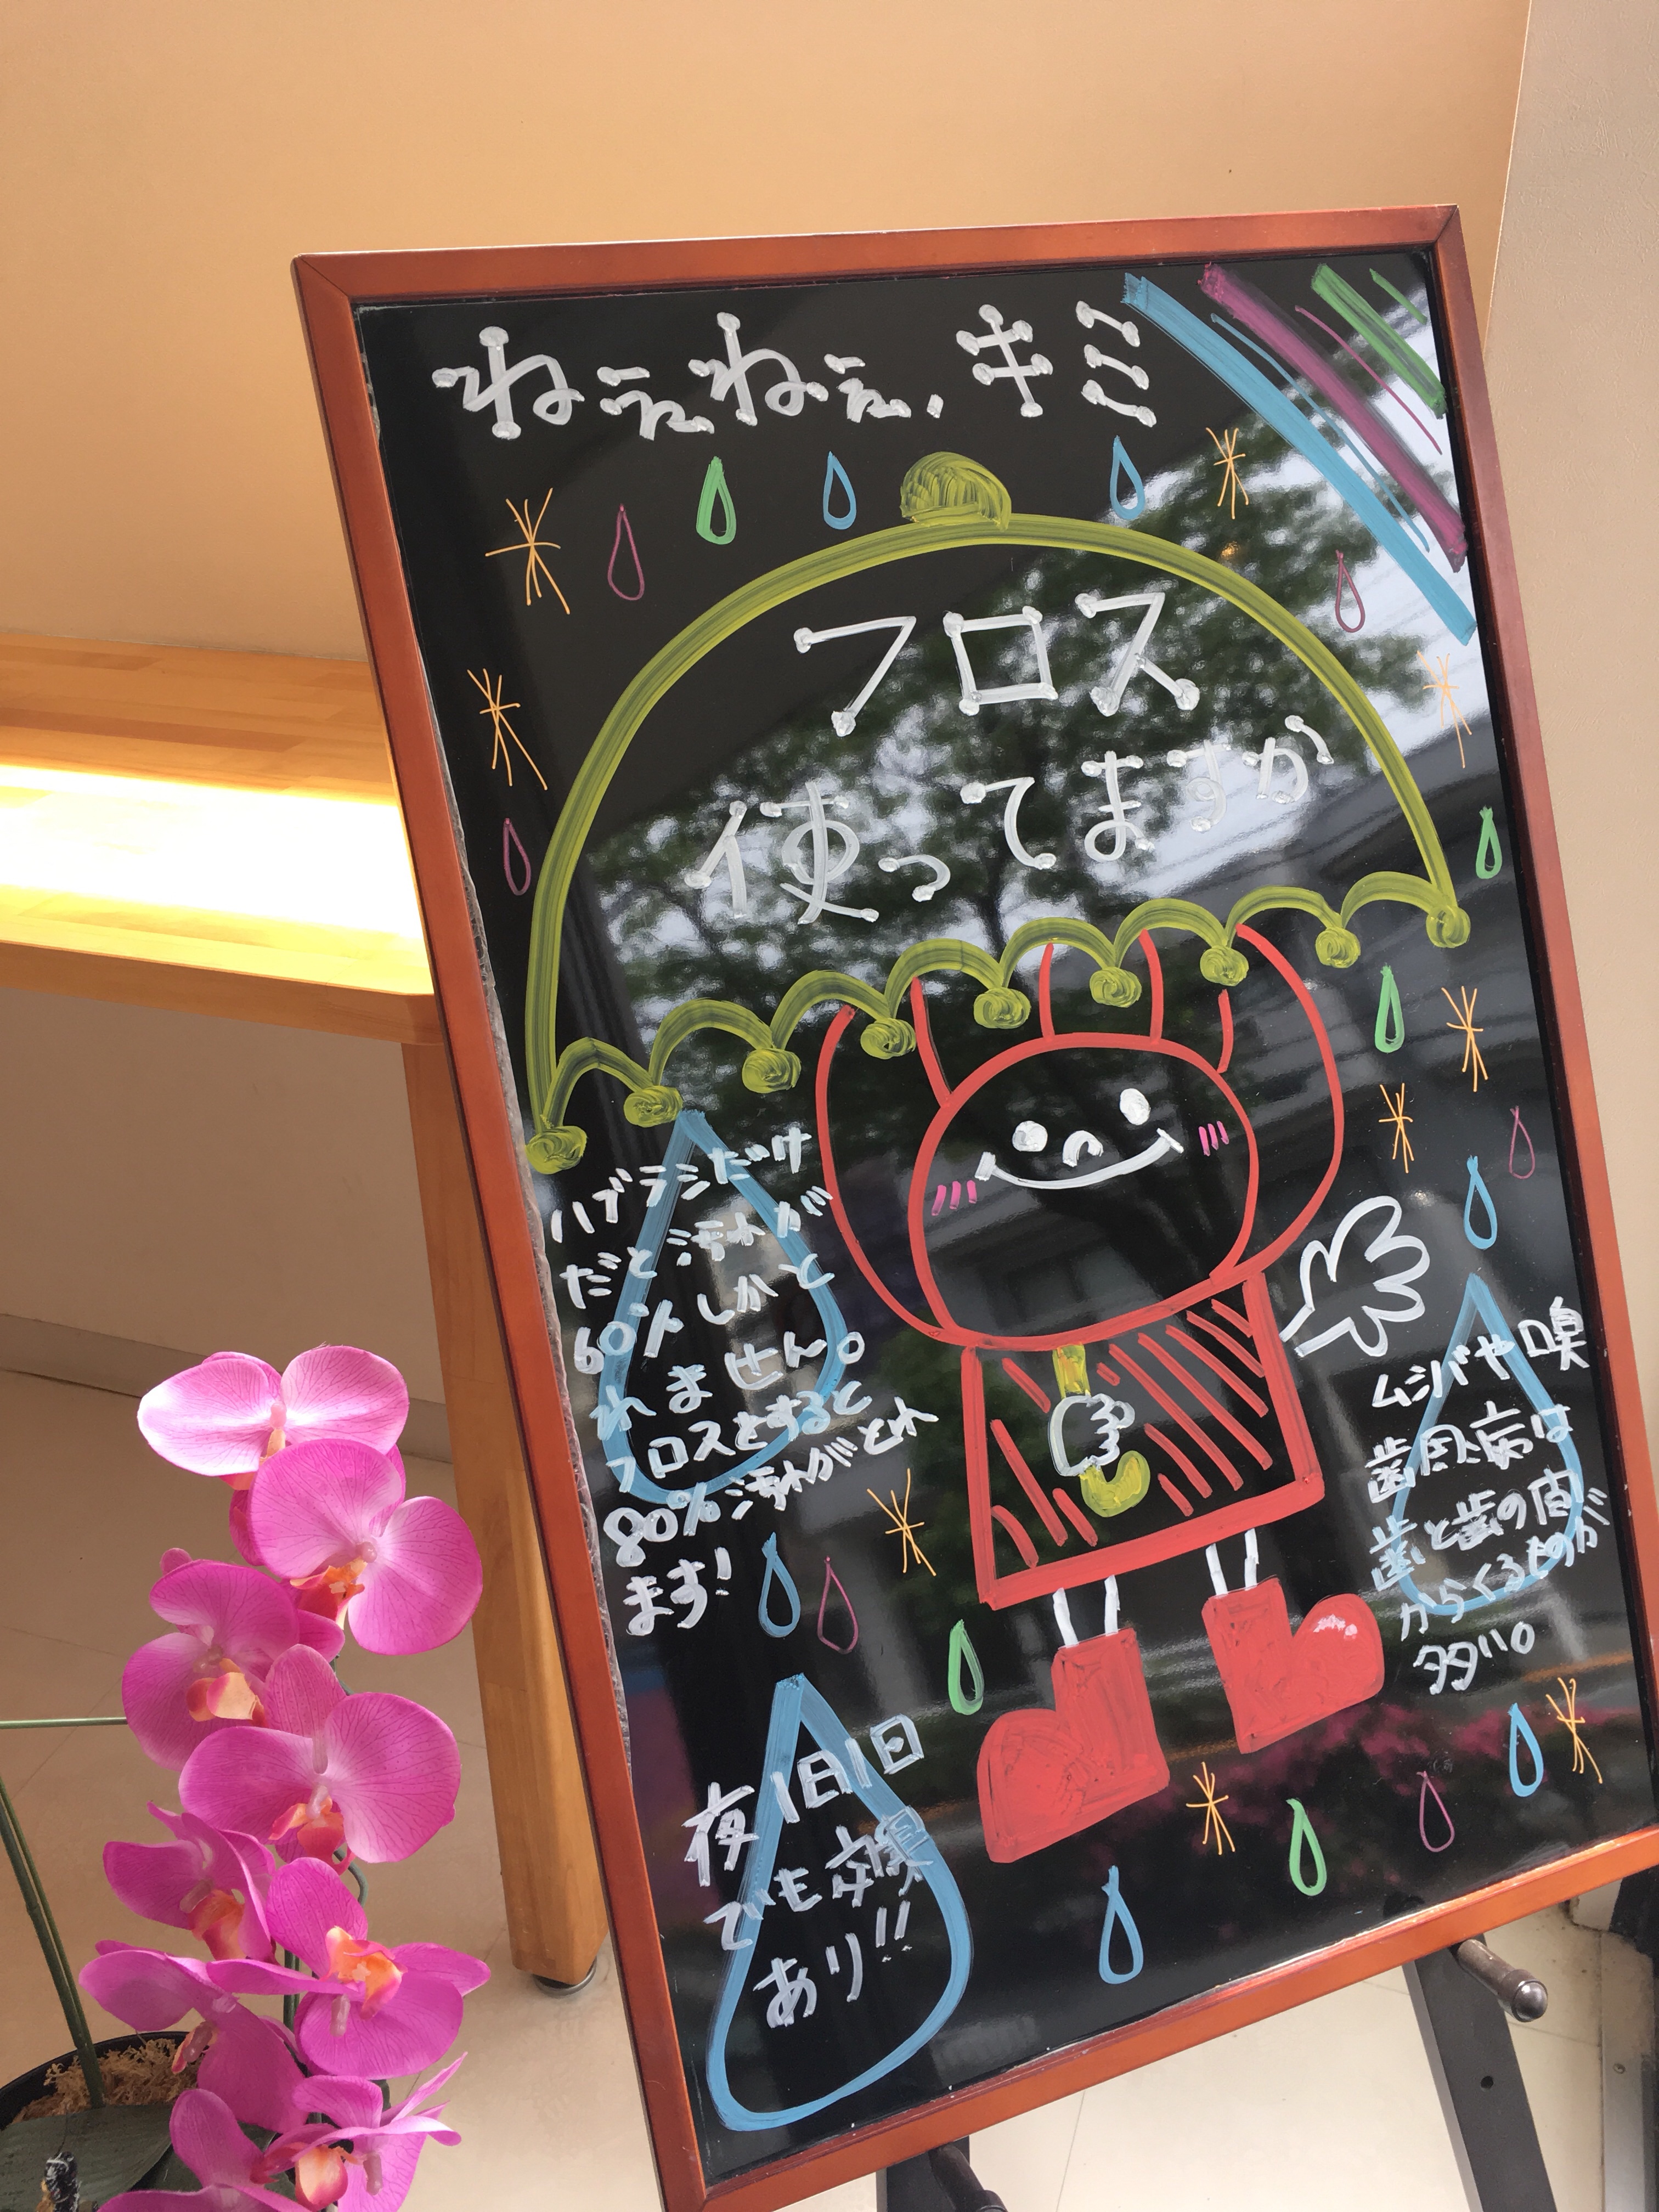 ねぇねぇ、キミ
フロス
使ってますか
ハブラシだけ
だと汚れが
60%しかと
れません。
フロスをすると
80%汚れがとれ
ます!
ムシバや口臭
歯周病は
歯と歯の間
からくるものが
多い。
夜1日1回
でも効果
あり!!